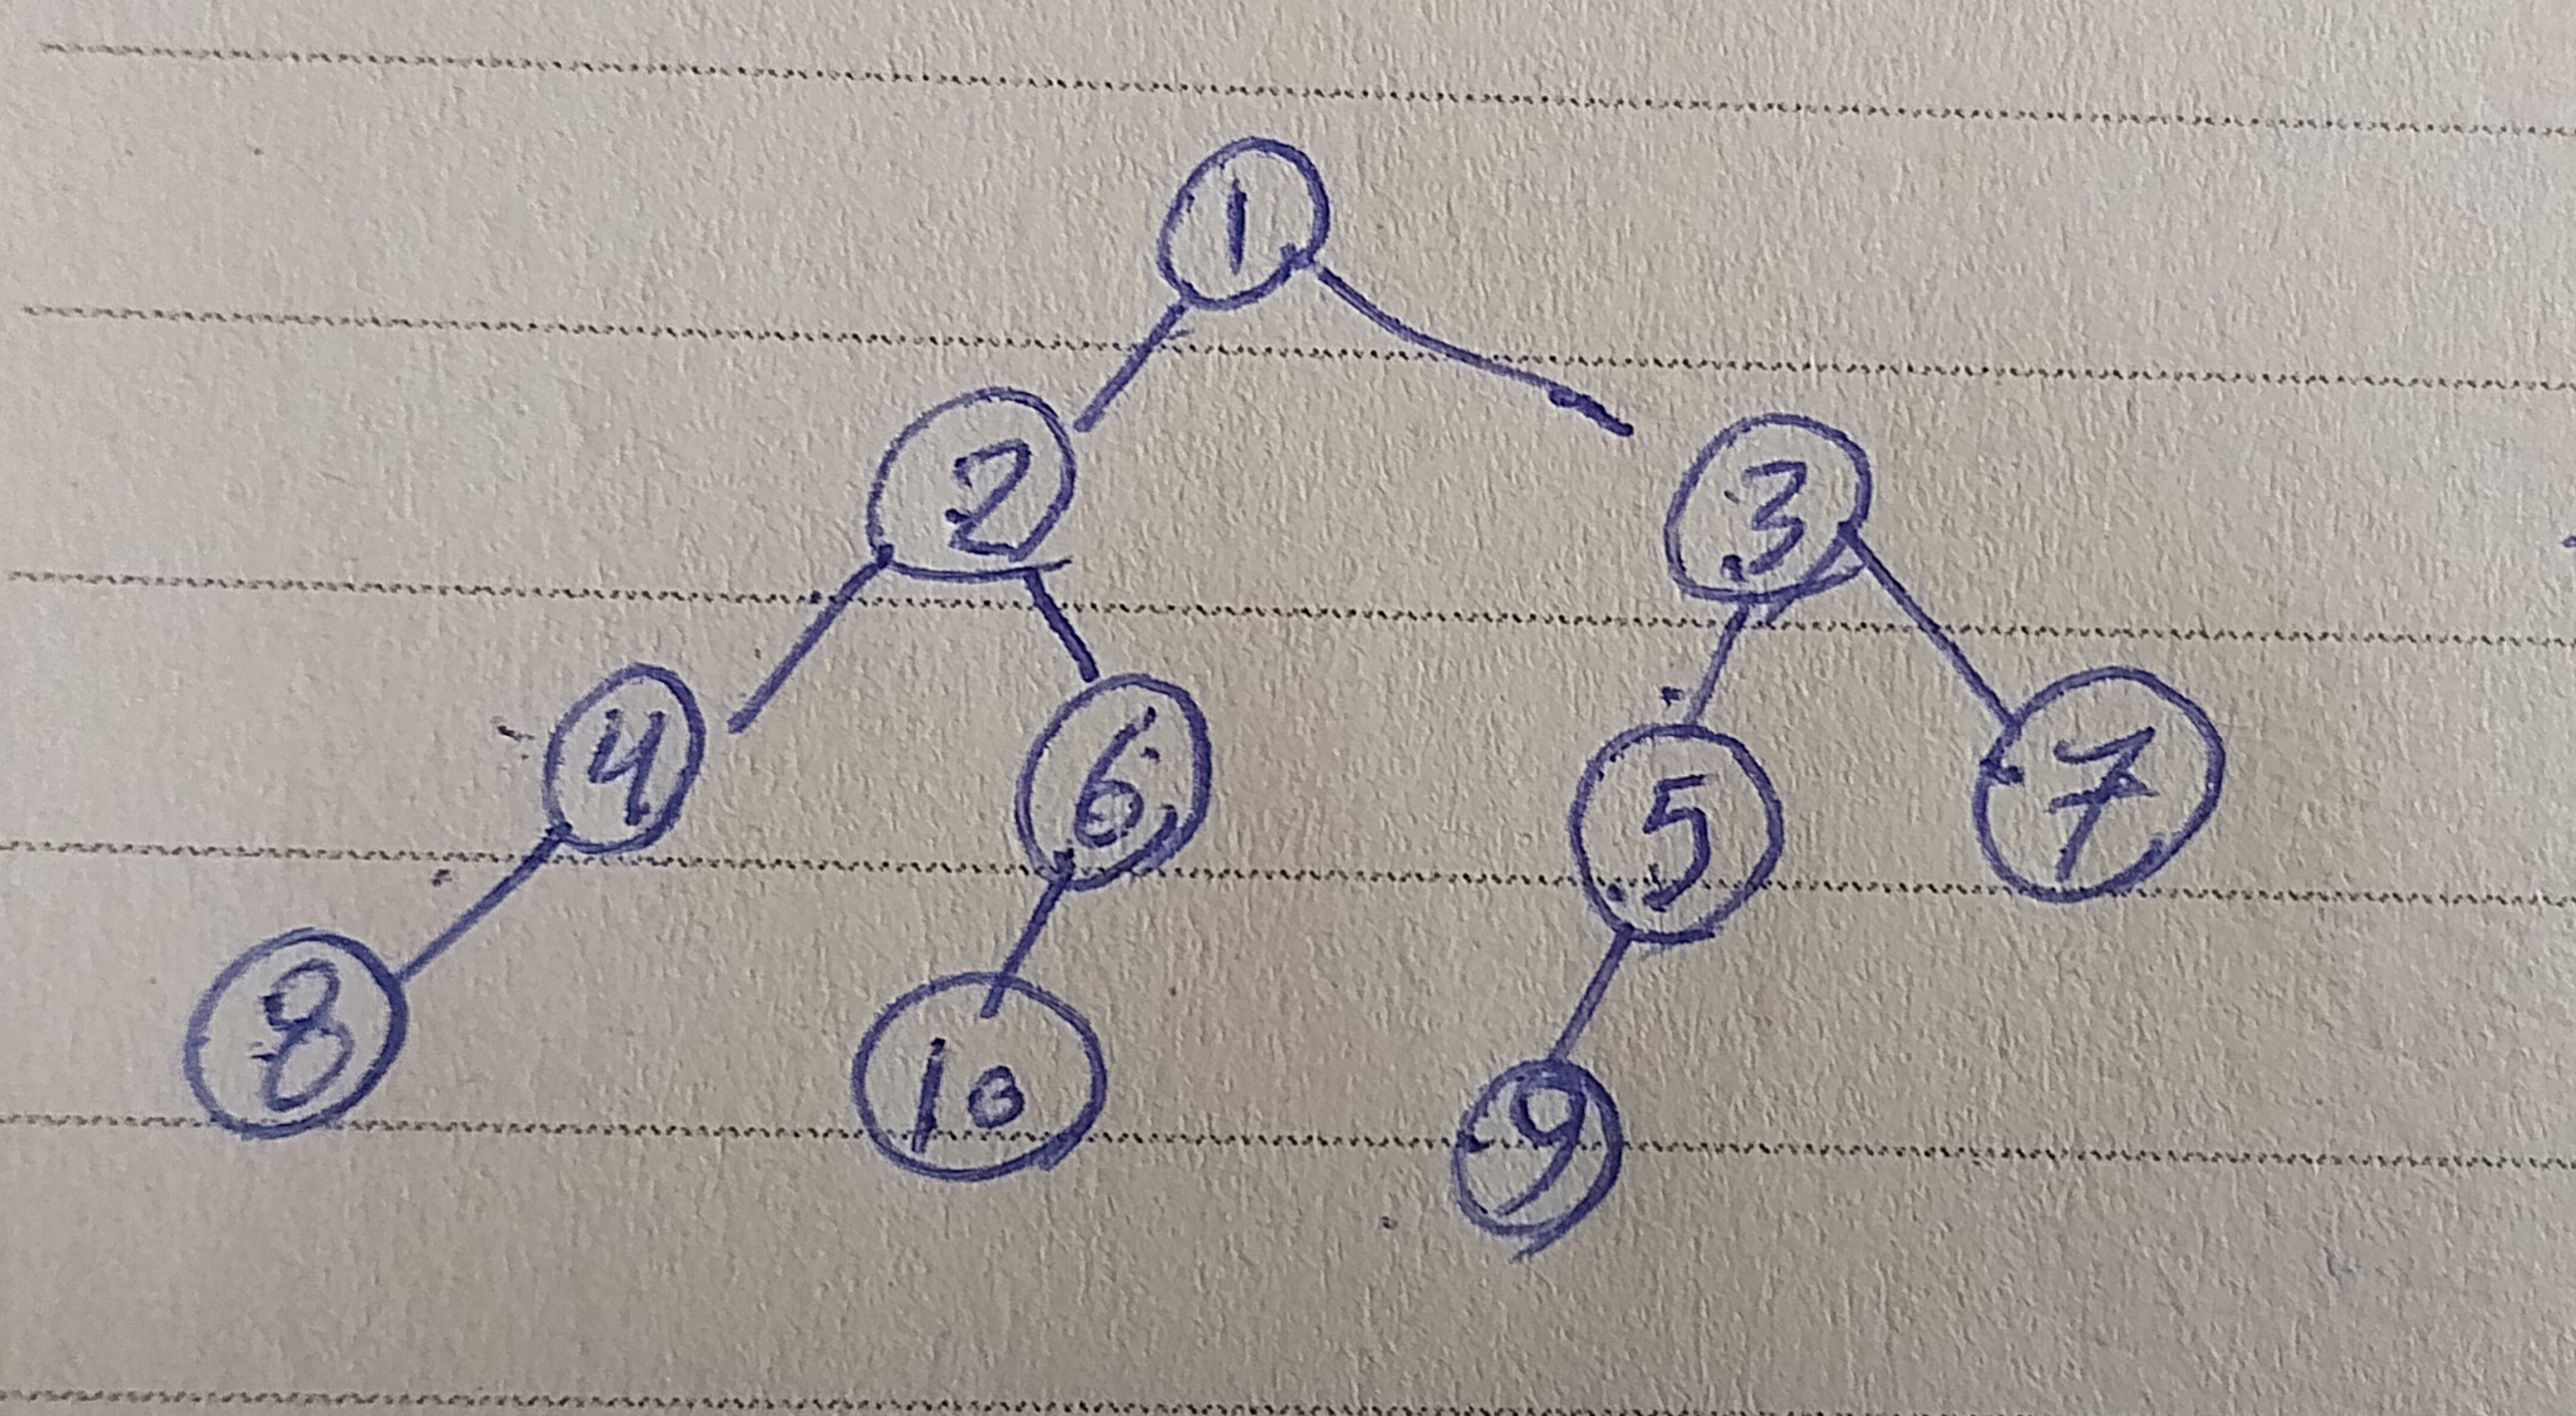 1
2 3
4 6 5 7
8 10 9